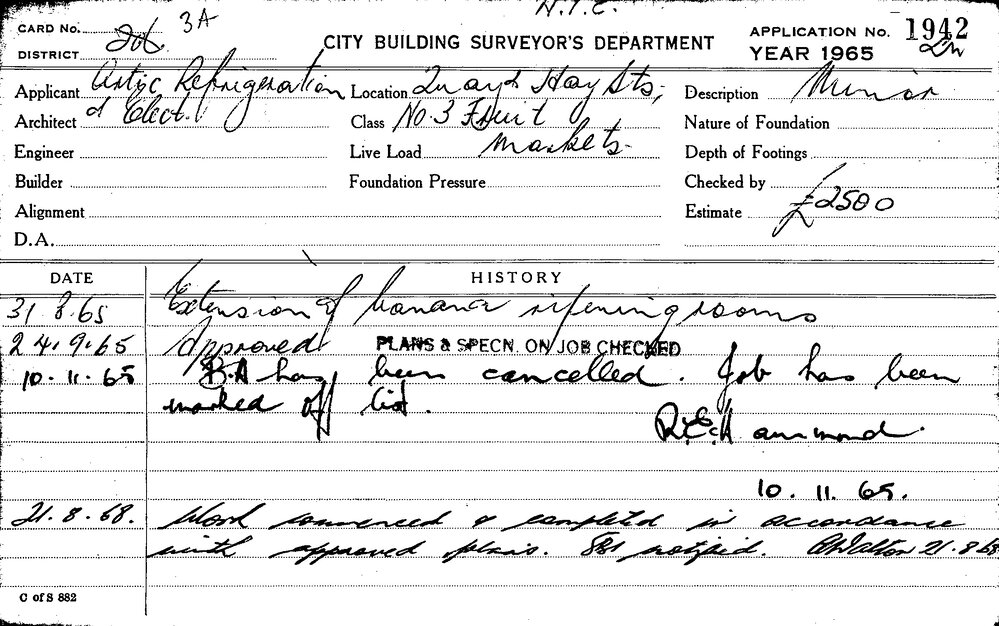 N.I.C.
CARD No. Job 3A
DISTRICT
CITY BUILDING SURVEYOR'S DEPARTMENT
APPLICATION No. 1942
YEAR 1965
Applicant Artic Refrigeration
Location Quay & Hay Sts,
Description Minor
Architect & Elect.
Class No. 3 Fruit
Nature of Foundation
Engineer
Live Load Markets.
Depth of Footings
Builder
Foundation Pressure
Checked by
Alignment
Estimate £2500
D.A.
DATE HISTORY
31.8.65 Extension of banana ripening rooms
24.9.65 Approved PLANS & SPECN. ON JOB CHECKED
10.11.65 B.A has been cancelled. Job has been
marked off list.
R.E.Hammond.
10.11.65.
21.8.68. Work commenced & completed in accordance
with approved plans. notified. 21.8.68
C of S 882